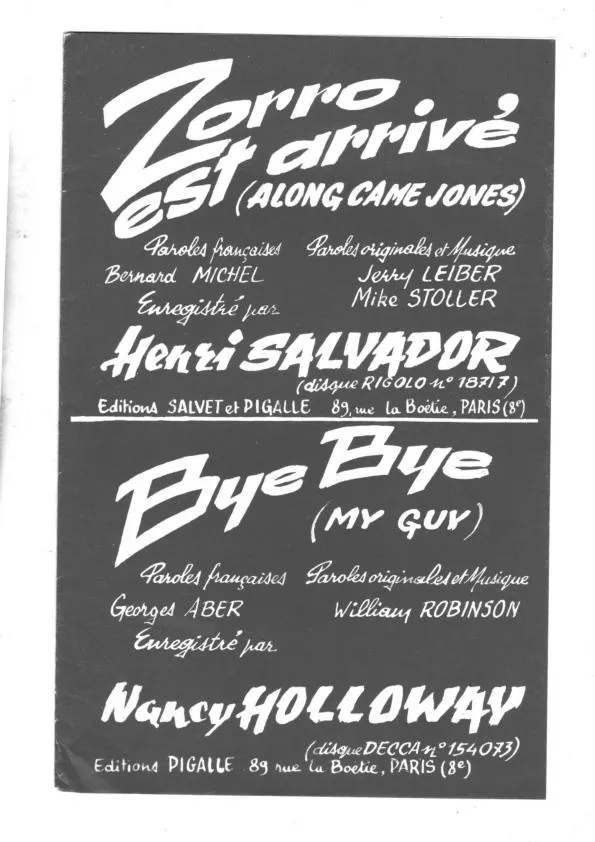 Zorro
est arrivé
(ALONG CAME JONES)
Paroles françaises Paroles originales et Musique
Bernard MICHEL Jerry LEIBER
Enregistré par Mike STOLLER
Henri SALVADOR
(disque RIGOLO n° 18717)
Editions SALVET et PIGALLE 89, rue la Boëtie, PARIS (8e)
Bye Bye
(MY GUY)
Paroles françaises Paroles originales et Musique
Georges ABER William ROBINSON
Enregistré par
Nancy HOLLOWAY
(disque DECCA n° 154073)
Editions PIGALLE 89 rue la Boetie, PARIS (8e)